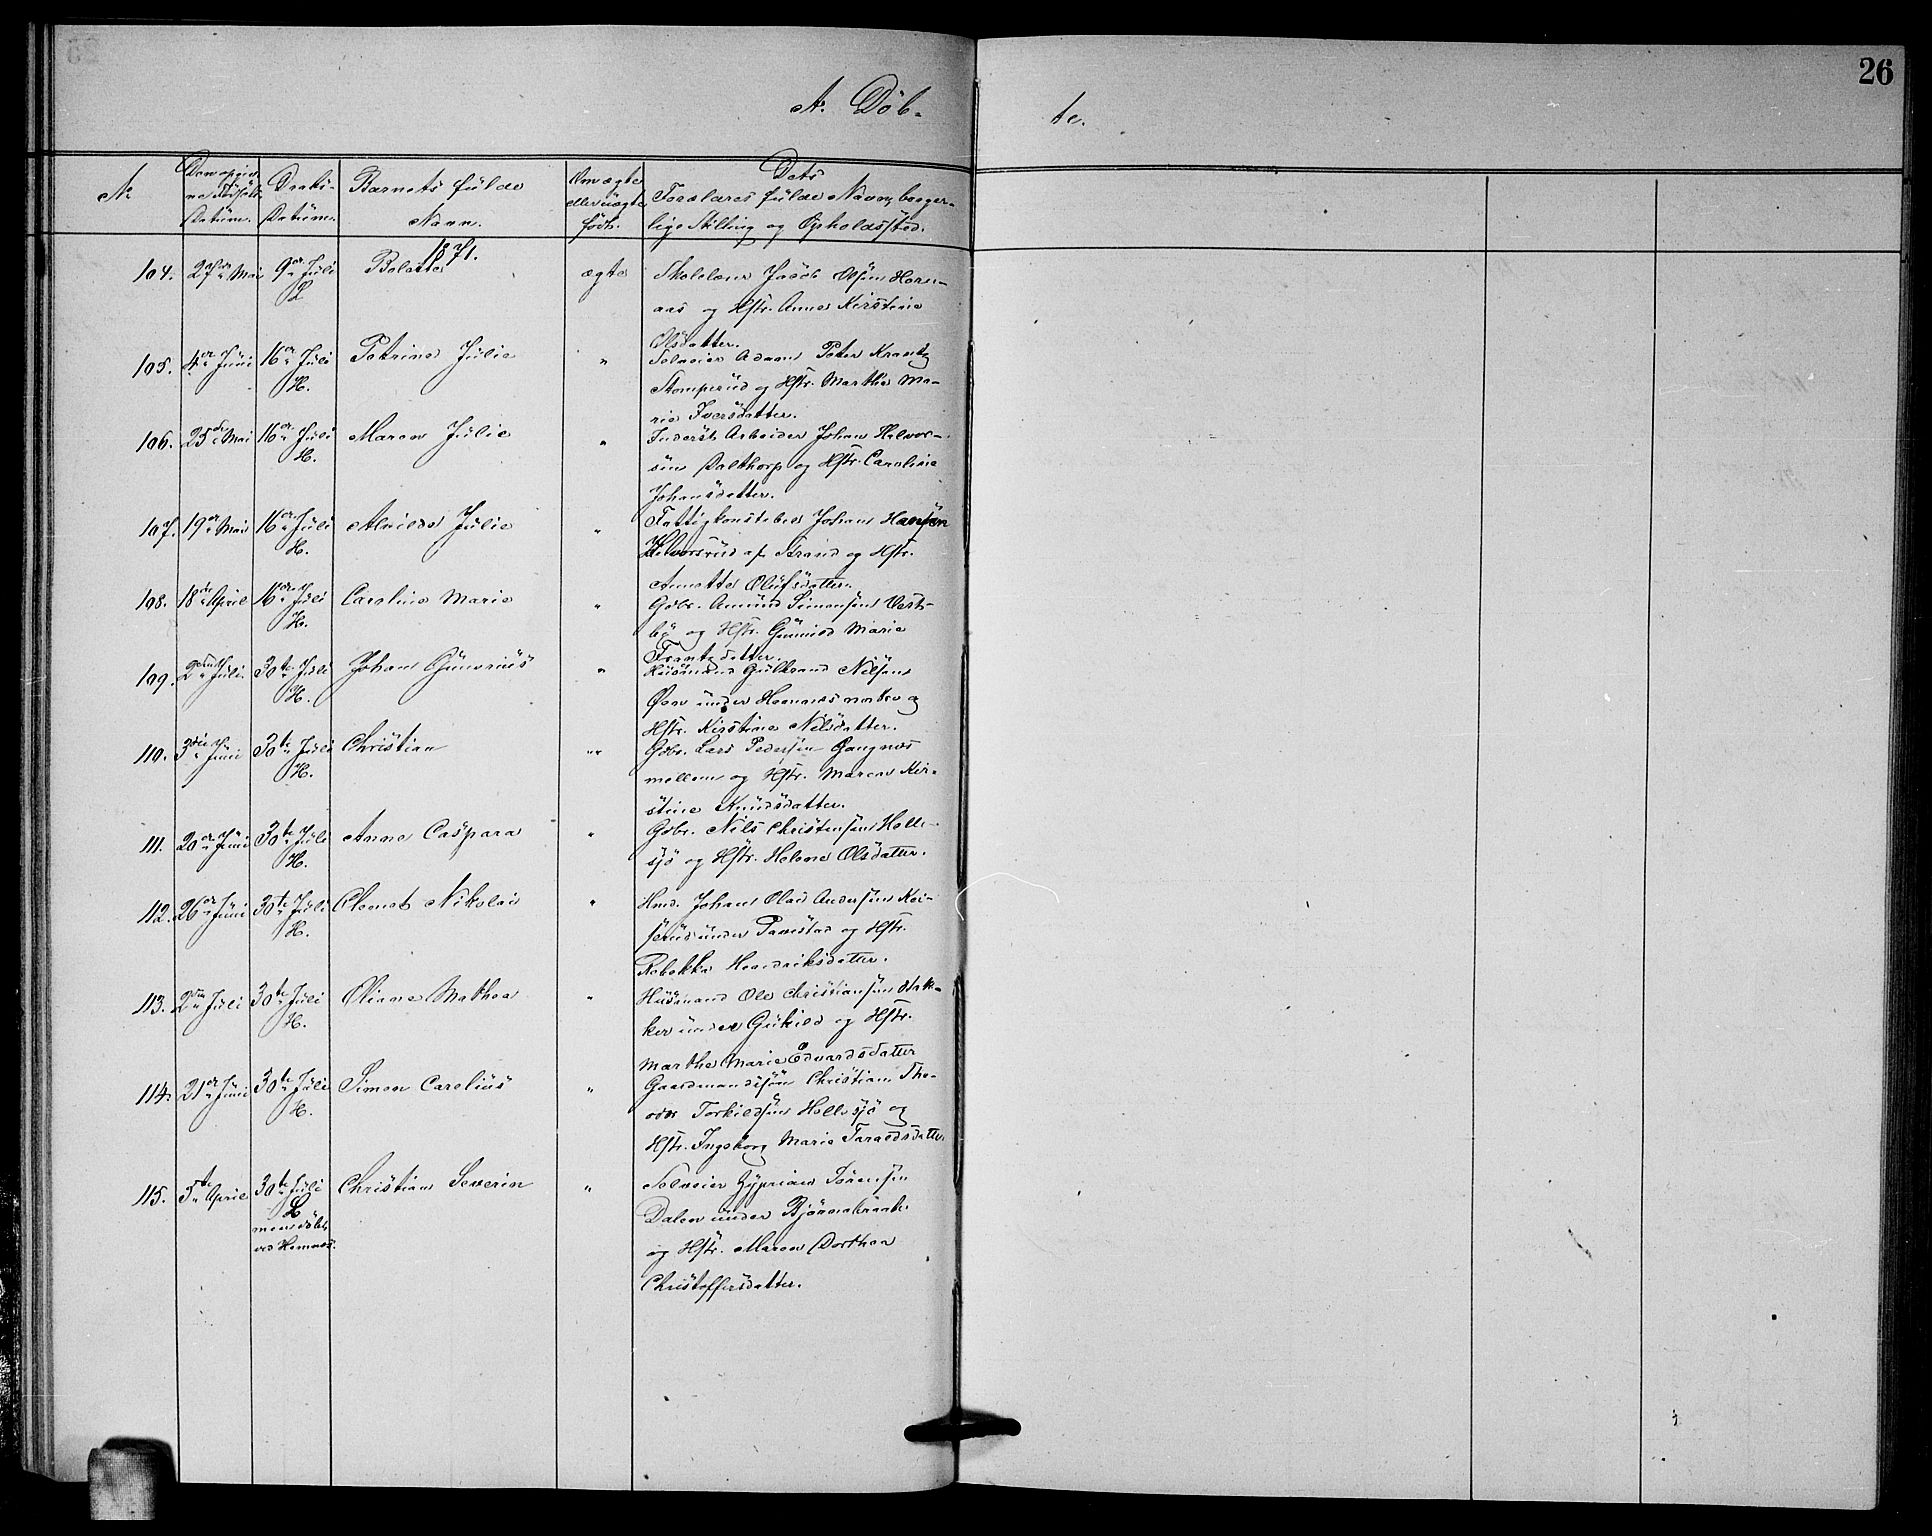 26
A. Döb-
te.
No
Den opgiv-
ne Födsels-
Datum.
Daabs-
Datum.
Barnets fulde
Navn.
Om ægte
eller uægte
født.
Dets
Forældres fulde Navn, borger-
lige Stilling og Opholdssted.
1871.
104. 27de Mai 9de Juli L Bolette ægte Skolelærer Jacob Olsen Horn-
aas og Hstr. Anne Kirstine
Olsdatter.
105. 4de Juni 16de Juli H. Petrine Julie " Selveier Adam Peter Krantz
Stomperud og Hstr. Marthe Ma-
rie Iversdatter.
106. 25de Mai 16de Juli H. Maren Julie " Inderst Arbeider Johan Halvor-
sen Dalthorp og Hstr. Caroline
Johansdatter.
107. 19de Mai 16de Juli H. Alvilde Julie " Fattigkonstabel Johan Hansen
Halvorsrud af Strand og Hstr.
Annette Olufsdatter.
108. 18de April 16de Juli H. Caroline Marie " Gdbr. Amund Simensen Vest-
by og Hstr. Gunnild Marie
Frantzdatter.
109. 2den Juli 30te Juli H. Johan Gunerius " Husmand Gulbrand Nilsen
Øen under Hemnæs nordre og
Hstr. Kirstine Nilsdatter.
110. 3die Juni 30te Juli H. Christian " Gdbr. Lars Pedersen Gangnæs
mellem og Hstr. Maren Kir-
stine Knudsdatter.
111. 20de Juni 30te Juli H. Anne Caspara " Gdbr. Nils Christensen Helle-
sjö og Hstr. Helene Olsdatter.
112. 26de Juni 30te Juli H. Clemet Nikolai " Hmd. Johan Olaus Andersen Kei-
serud under Tanustad og Hstr.
Rebekka Hendriksdatter.
113. 2den Juli 30te Juli H. Oliane Mathea " Husmand Ole Christiansen Bak-
ker under Gukild og Hstr.
Marthe Marie Edvardsdatter
114. 21de Juni 30te Juli H. Simen Carelius " Gaardmandssön Christian The-
odor Torkildsen Hellesjö og
Hstr. Ingeborg Marie Taraldsdatter
115. 5te April 30te Juli L men döbt ved Hemnæs. Christian Severin " Selveier Zyprian Sörensen
Dalen under Bjørnebraate
og Hstr. Maren Dorthea
Christoffersdatter.